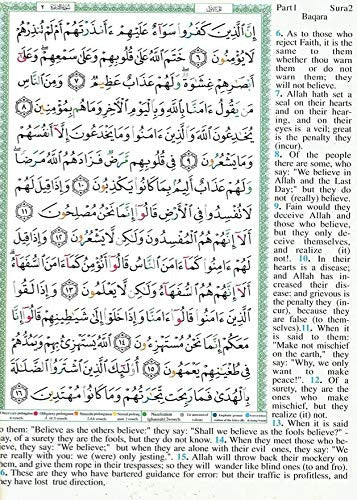 Part1 Sura2
Baqara
إِنَّ ٱلَّذِينَ كَفَرُوا۟ سَوَآءٌ عَلَيْهِمْ ءَأَنذَرْتَهُمْ أَمْ لَمْ تُنذِرْهُمْ
لَا يُؤْمِنُونَ ٦ خَتَمَ ٱللَّهُ عَلَىٰ قُلُوبِهِمْ وَعَلَىٰ سَمْعِهِمْ ۖ وَعَلَىٰٓ
أَبْصَٰرِهِمْ غِشَٰوَةٌ ۖ وَلَهُمْ عَذَابٌ عَظِيمٌ ٧ وَمِنَ ٱلنَّاسِ
مَن يَقُولُ ءَامَنَّا بِٱللَّهِ وَبِٱلْيَوْمِ ٱلْءَاخِرِ وَمَا هُم بِمُؤْمِنِينَ ٨
يُخَٰدِعُونَ ٱللَّهَ وَٱلَّذِينَ ءَامَنُوا۟ وَمَا يَخْدَعُونَ إِلَّآ أَنفُسَهُمْ
وَمَا يَشْعُرُونَ ٩ فِى قُلُوبِهِم مَّرَضٌ فَزَادَهُمُ ٱللَّهُ مَرَضًا ۖ
وَلَهُمْ عَذَابٌ أَلِيمٌۢ بِمَا كَانُوا۟ يَكْذِبُونَ ١٠ وَإِذَا قِيلَ لَهُمْ
لَا تُفْسِدُوا۟ فِى ٱلْأَرْضِ قَالُوٓا۟ إِنَّمَا نَحْنُ مُصْلِحُونَ
١١ أَلَآ إِنَّهُمْ هُمُ ٱلْمُفْسِدُونَ وَلَٰكِن لَّا يَشْعُرُونَ ١٢ وَإِذَا قِيلَ
لَهُمْ ءَامِنُوا۟ كَمَآ ءَامَنَ ٱلنَّاسُ قَالُوٓا۟ أَنُؤْمِنُ كَمَآ ءَامَنَ ٱلسُّفَهَآءُ ۗ
أَلَآ إِنَّهُمْ هُمُ ٱلسُّفَهَآءُ وَلَٰكِن لَّا يَعْلَمُونَ ١٣ وَإِذَا لَقُوا۟
ٱلَّذِينَ ءَامَنُوا۟ قَالُوٓا۟ ءَامَنَّا وَإِذَا خَلَوْا۟ إِلَىٰ شَيَٰطِينِهِمْ قَالُوٓا۟ إِنَّا
مَعَكُمْ إِنَّمَا نَحْنُ مُسْتَهْزِءُونَ ١٤ ٱللَّهُ يَسْتَهْزِئُ بِهِمْ وَيَمُدُّهُمْ
فِى طُغْيَٰنِهِمْ يَعْمَهُونَ ١٥ أُو۟لَٰٓئِكَ ٱلَّذِينَ ٱشْتَرَوُا۟ ٱلضَّلَٰلَةَ
بِٱلْهُدَىٰ فَمَا رَبِحَت تِّجَٰرَتُهُمْ وَمَا كَانُوا۟ مُهْتَدِينَ ١٦
6. As to those who
reject Faith, it is the
same to them
whether thou warn
them or do not
warn them; they
will not believe.
7. Allah hath set a
seal on their hearts
and on their hear-
ing, and on their
eyes is a veil; great
is the penalty they
(incur).
8. Of the people
there are some, who
say: "We believe in
Allah and the Last
Day;" but they do
not (really) believe.
9. Fain would they
deceive Allah and
those who believe,
but they only de-
ceive themselves,
and realize (it)
not!. 10. In their
hearts is a disease;
and Allah has in-
creased their dis-
ease: and grievous is
the penalty they (in-
cur), because they
are false (to them-
selves). 11. When it
is said to them:
"Make not mischief
on the earth," they
say: "Why, we only
want to make
peace!". 12. Of a
surety, they are the
ones who make
mischief, but they
realize (it) not.
13. When it is said
to them: "Believe as the others believe:" they say: "Shall we believe as the fools believe?" -
ay, of a surety they are the fools, but they do not know. 14. When they meet those who be-
ieve, they say: "We believe;" but when they are alone with their evil ones, they say: "We
re really with you: we (were) only jesting." 15. Allah will throw back their mockery on
hem, and give them rope in their trespasses; so they will wander like blind ones (to and fro).
6. These are they who have bartered guidance for error: but their traffic is profitless, and
hey have lost true direction,